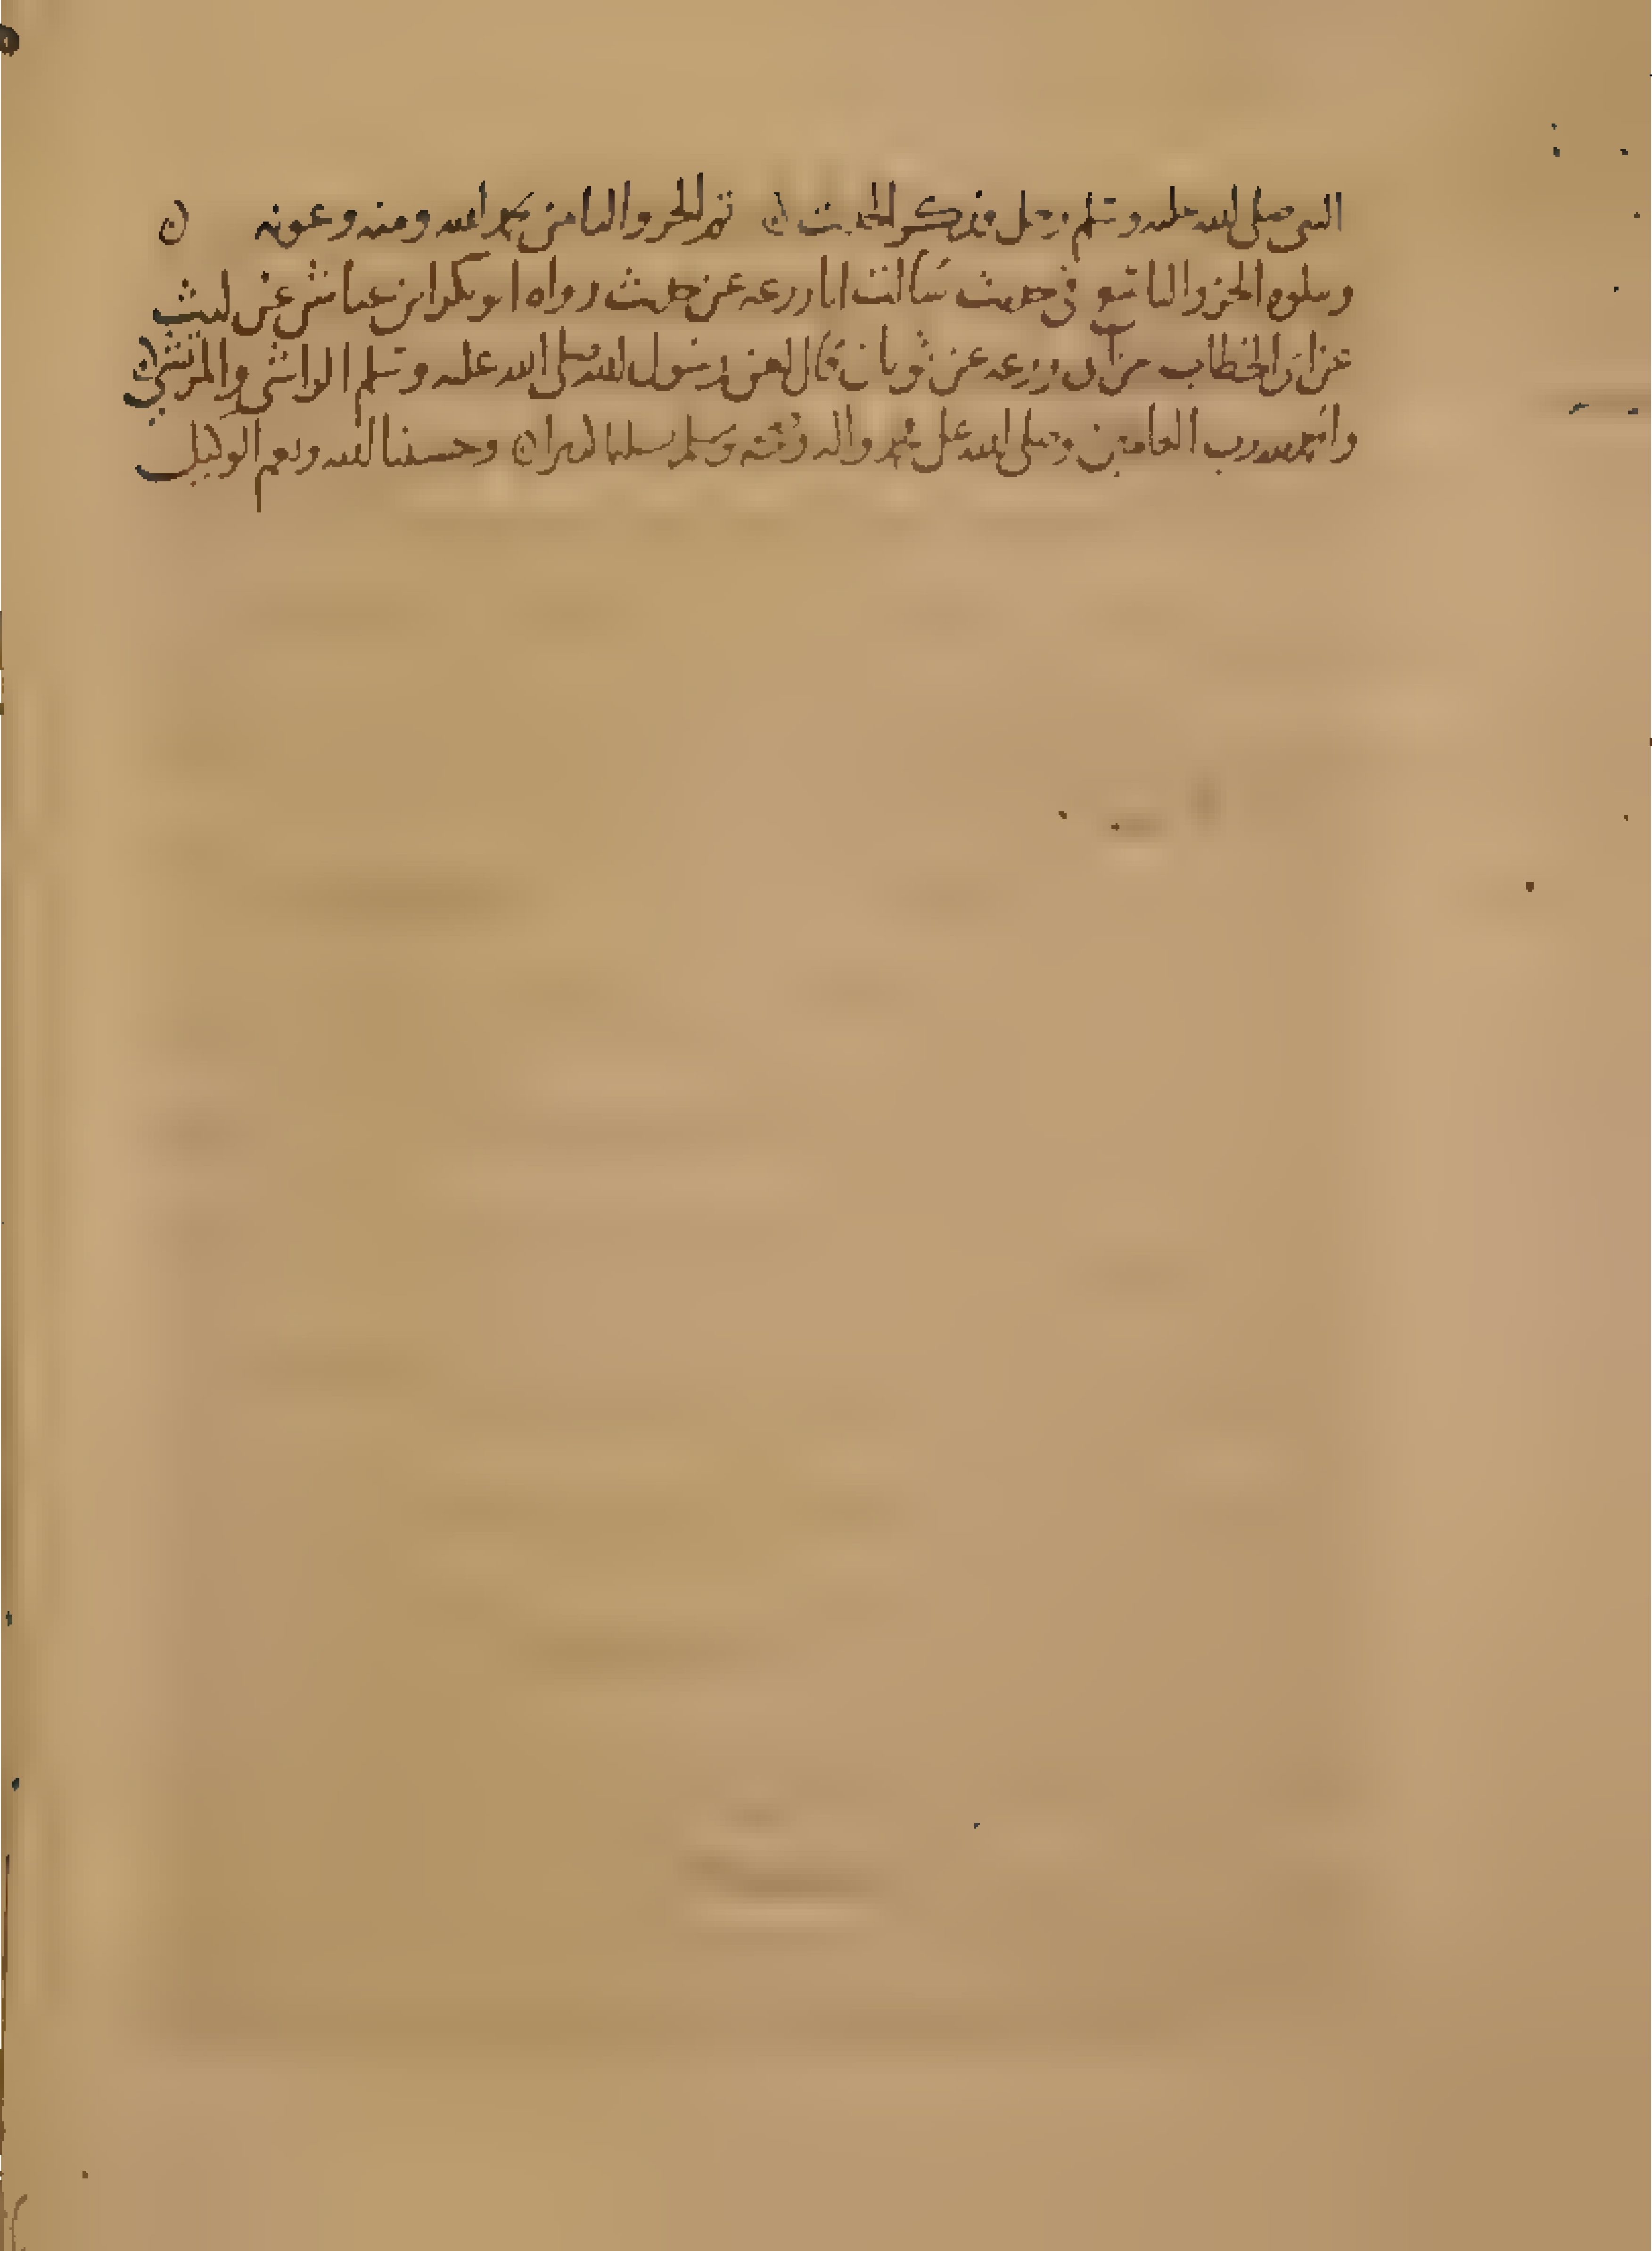 النبي صلى الله عليه وسلم رجل فذكر الحديث ۞ تم الجزو الثامن بحمد الله ومنه وعونه ۞
ويتلوه الجزو التاسع في حديث سالت ابا زرعه عن حديث رواه ابو بكر ابن عياش عن ليث
عن ابي الخطاب عن ابي زرعه عن ثوبان قال لعن رسول الله صلى الله عليه وسلم الراشي والمرتشي ۞
والحمد لله رب العالمين وصلى الله على محمد واله وسلم تسليما كثيرا ۞ وحسبنا الله ونعم الوكيل